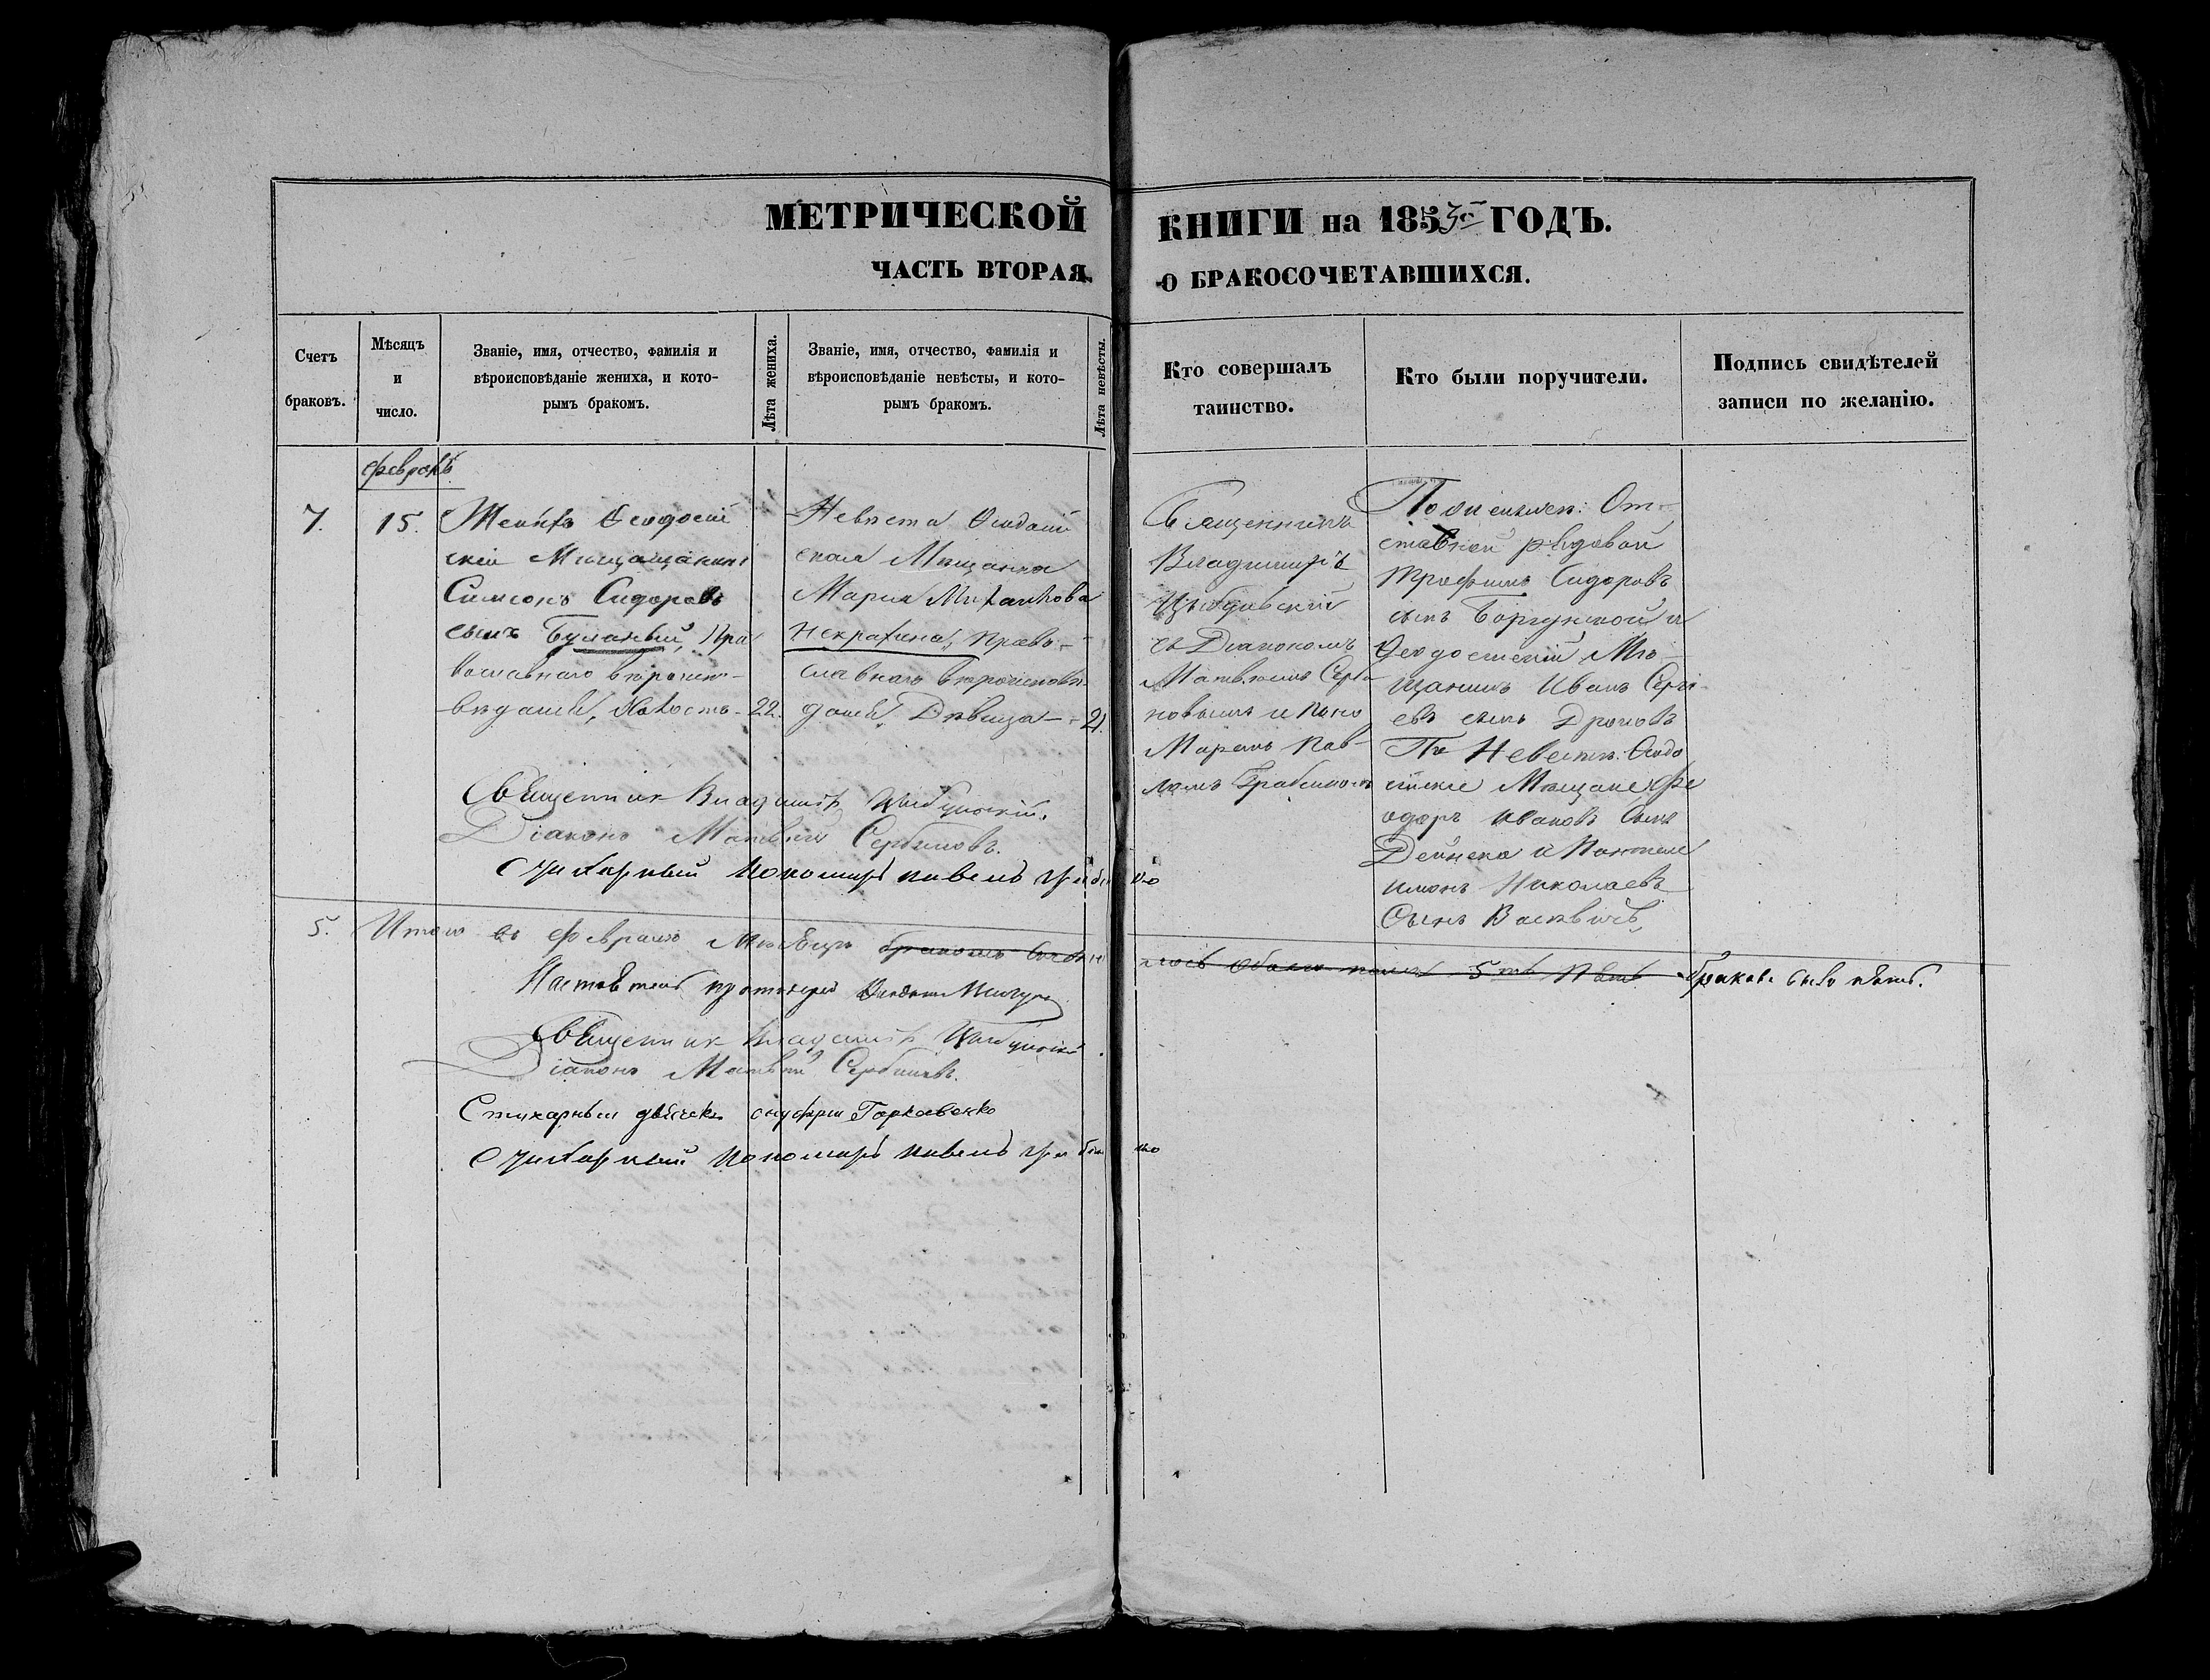 МЕТРИЧЕСКОЙ КНИГИ на 1853й ГОДЪ.
ЧАСТЬ ВТОРАЯ, О БРАКОСОЧЕТАВШИХСЯ.
Счетъ
браковъ.
Мѣсяцъ
и
число.
Званіе, имя, отчество, фамилія и
вѣроисповѣданіе жениха, и кото-
рымъ бракомъ.
Лѣта жениха.
Званіе, имя, отчество, фамилія и
вѣроисповѣданіе невѣсты, и кото-
рымъ бракомъ.
Лѣта невѣсты.
Кто совершалъ
таинство.
Кто были поручители.
Подпись свидѣтелей
записи по желанію.
февраль.
7.
15.
Женихъ Ѳеодосій
скій
Симеонъ Сидоровъ
сынъ Буланый, Пра
вославнаго вѣроиспо-
вѣданія, Холостъ-
22.
Невѣста Ѳеодосій
ская Мѣщанка
Марія Михайлова
Некрахина, Право-
славнаго вѣроисповѣ-
данія, Дѣвица-
21.
Священникъ
Владимиръ
съ Діакономъ
Матвѣемъ Серби
новымъ и Поно
маремъ Пав-
ломъ
По женихѣ: От-
ставной рядовой
Трофимъ Сидоровъ
сынъ и
Ѳеодосійскій Мѣ-
щанинъ Иванъ Сергѣ-
евъ сынъ Дроновъ
По Невѣстѣ: Ѳеодо
сійскіе Мѣщане Фе
одоръ Ивановъ Сынъ
Дейнека и Пантеле
имонъ Николаевъ
Сынъ Васквичъ,
Священникъ Владиміръ
Діаконъ Матвей Сербиновъ.
Стихарный Пономарь Павелъ
5.
Итого въ Февралѣ Мѣсяцѣ бракомъ 5ть Пять браковъ было пять.
Протоіерей
Священникъ Владиміръ
Діаконъ Матвей Сербиновъ.
Стихарный дьячекъ Онуфрій Горковенко
Стихарный Пономарь Павелъ